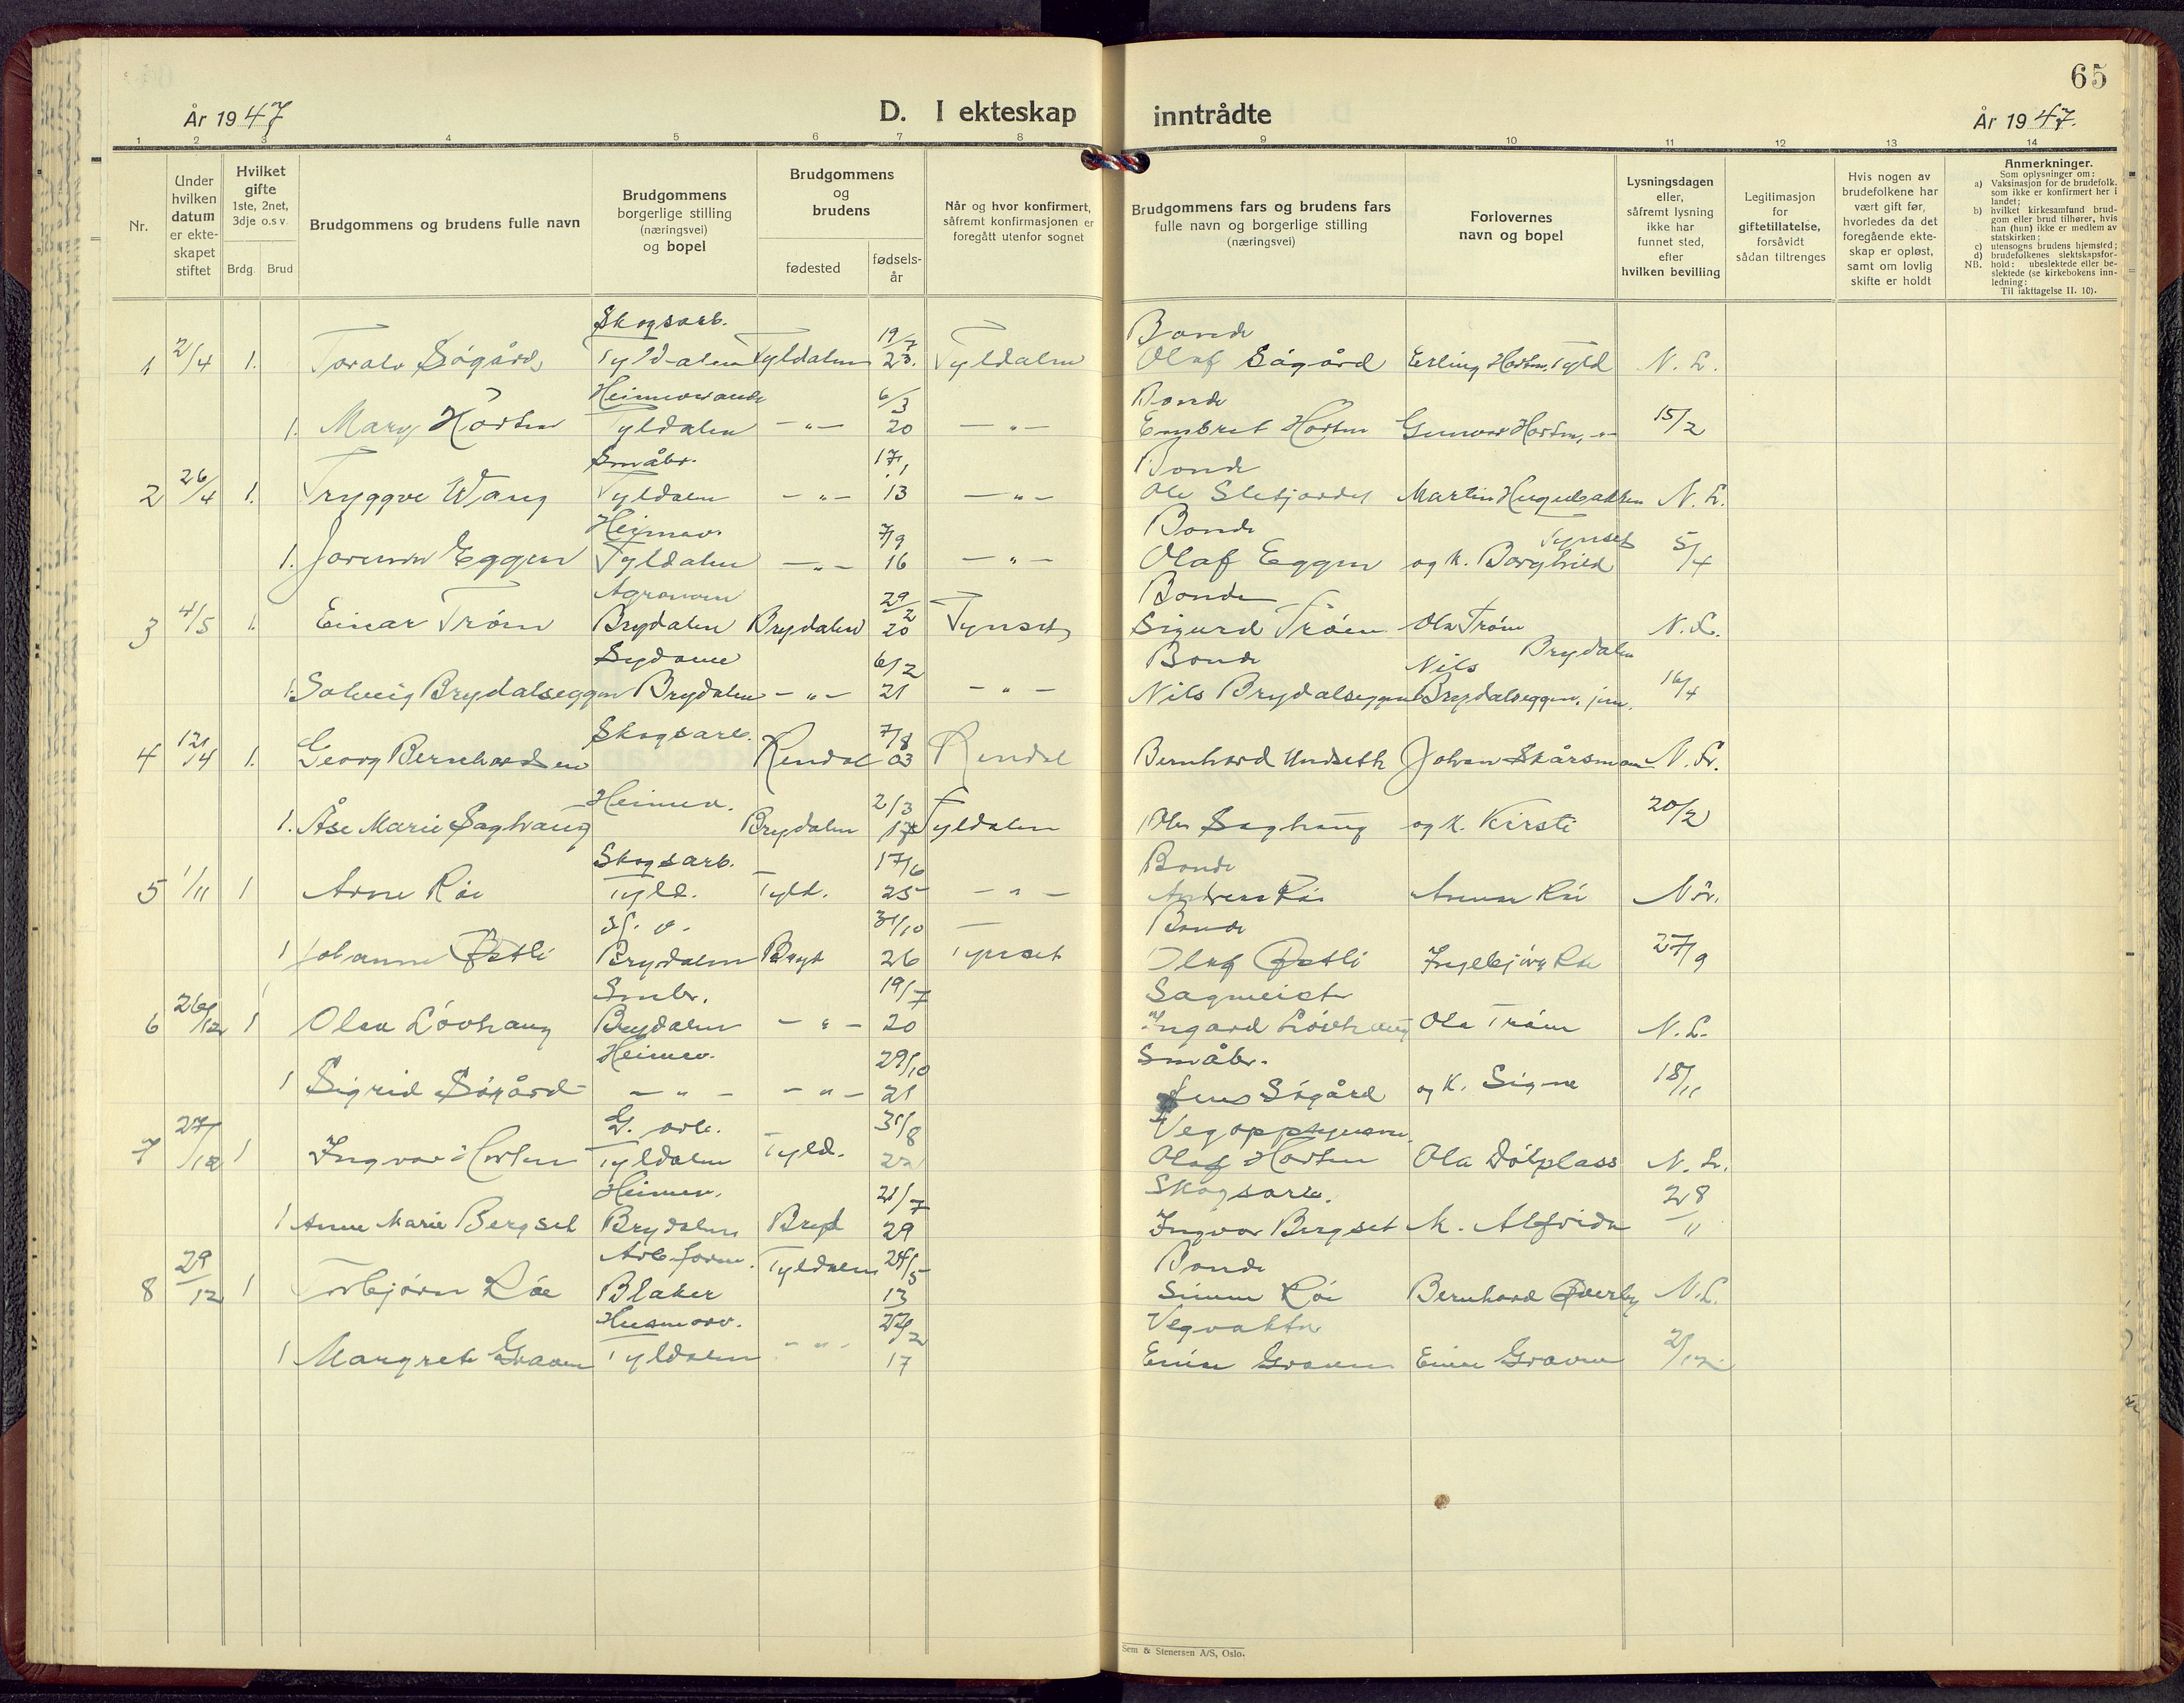 65
År 1947
D. I ekteskap inntrådte
År 1947.
1 2 3 4 5 6 7 8 9 10 11 12 13 14
Nr.
Under hvilken datum er ekteskapet stiftet
Hvilket gifte 1ste, 2net, 3dje o.s.v.
Brdg. Brud
Brudgommens og brudens fulle navn
Brudgommens borgerlige stilling (næringsvei) og bopel
Brudgommens og brudens
fødested
fødselsår
Når og hvor konfirmert, såfremt konfirmasjonen er foregått utenfor sognet
Brudgommens fars og brudens fars fulle navn og borgerlige stilling (næringsvei)
Forlovernes navn og bopel
Lysningsdagen eller, såfremt lysning ikke har funnet sted, efter hvilken bevilling
Legitimasjon for giftetillatelse, forsåvidt sådan tiltrenges
Hvis nogen av brudefolkene har vært gift før, hvorledes da det foregående ekteskap er opløst, samt om lovlig skifte er holdt
Anmerkninger.
Som oplysninger om:
a) Vaksinasjon for de brudefolk, som ikke er konfirmert her i landet;
b) hvilket kirkesamfund brudgom eller brud tilhører, hvis han (hun) ikke er medlem av statskirken;
c) utensogns brudens hjemsted;
d) brudefolkenes slektskapsforhold: ubeslektede eller beslektede (se kirkebokens innledning:
NB.
Til iakttagelse II. 10).
Skogsarb. 19/7 Bonde
1 2/4 1. Toralv Søgård Tyldalen Tyldalen 23. Tyldalen Olaf Søgård Erling Horten, Tyld N. L.
Heimeværende 6/3 Bonde
1. Mary Horten Tyldalen -"- 20 -"- Embret Horten Gunvor Horten, -"- 15/2
Småbr. 17/1 Bonde
2 26/4 1. Tryggve Wang Tyldalen -"- 13 -"- Ole Martin N. L.
Heimev. 7/9 Bonde Tynset
1. Jorunn Eggen Tyldalen -"- 16 -"- Olaf Eggen og k. Borghild 5/4
Agronom 29/2 Bonde
3 4/5 1. Einar Trøen Brydalen Brydalen 20 Tynset Sigurd Trøen Ola Trøen Brydalen N. L.
Sydame 6/2 Bonde Nils
1. Solveig Brydalseggen Brydalen -"- 21 -"- Nils Brydalseggen Brydalseggen. jun. 16/4
Skogsarb. 7/8
4 12/4 1. Georg Bernhardsen Rendal 03 Rendal Bernhard Undseth Johan Skårsmoen N. L.
Heimev. 2/3
1. Åse Marie Saghaug Brydalen 17 Tyldalen Ole Saghaug og k. Kirsti 20/2
Skogsarb. 17/6 Bonde
5 1/11 1 Arne Røe Tyld. Tyld. 25 -"- Andreas Røe Røe N. L.
31/10 Bonde
1 Johanne Østli Brydalen Bryd 26 Tynset Olaf Østli Ingebjørg Røe 27/9
Smbr. 19/7 Sagmeister
6 26/12 1 Olav Løvhaug Brydalen -"- 20 Ingard Løvhaug Ola Trøen N. L.
Heimev. 29/10 Småbr.
1 Sigrid Søgård -"- -"- 21 Jens Søgård og k. Signe 18/11
G. arb. 31/8 Vegoppsynsm.
7 27/12 1 Ingvar Horten Tyldalen Tyld. 22 Olaf Horten Ola Dølplass N. L.
Heimev. 21/7 Skogsarb.
1 Anne Marie Bergset Brydalen Bryd 29 Ingvar Bergset k. Alfrida 28/11
Arb.form. Tyldalen 24/5 Bonde
8 29/12 1 Torbjørn Røe Blaker 13 Simen Røe Bernhard Øverby N. L.
Husmorv. 27/2 Vegvakter
1 Margrete Graven Tyldalen -"- 17 Einar Graven Einar Graven 2/12
Sem & Stenersen A/S, Oslo.